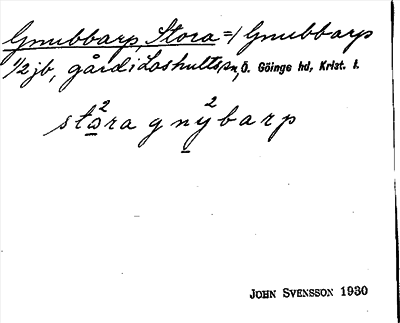 Gnubbarp, Stora = 1 Gnubbarp
1/2 jb, gård i Loshults sn, Ö. Göinge hd, Krist. l.
sto²ra gny²barp
JOHN SVENSSON 1930